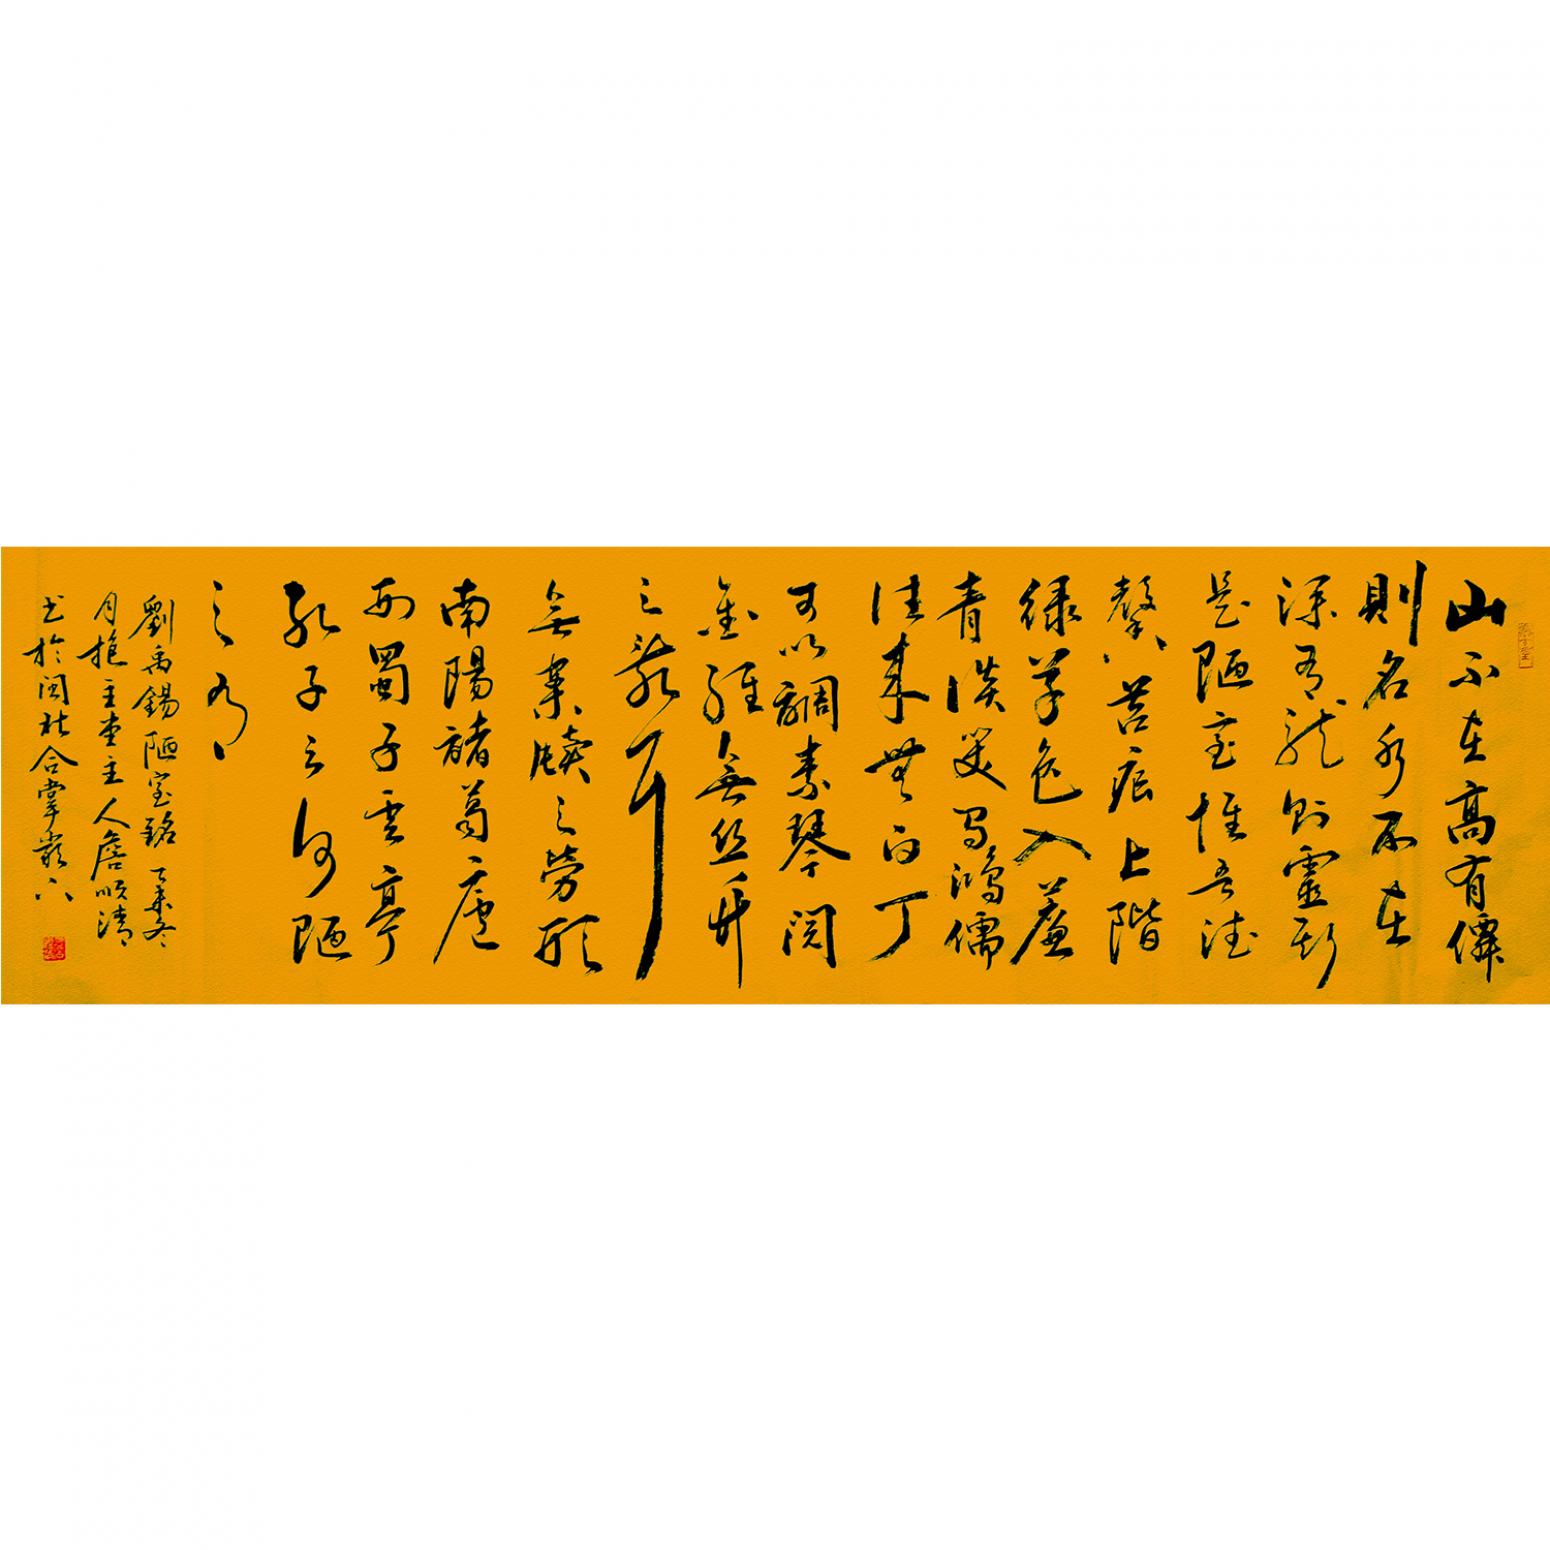 山不在高有僊
則名水不在
深有龍則靈斯
是陋室惟吾德
馨苔痕上階
緑草色入簾
青談笑有鴻儒
往来無白丁
可以調素琴閲
金經無丝竹
之亂耳
無案牘之勞形
南陽諸葛廬
西蜀子雲亭
孔子云何陋
之有
劉禹錫陋室銘 乙未冬
月抱主人詹順清
书於閩杜合掌巖下